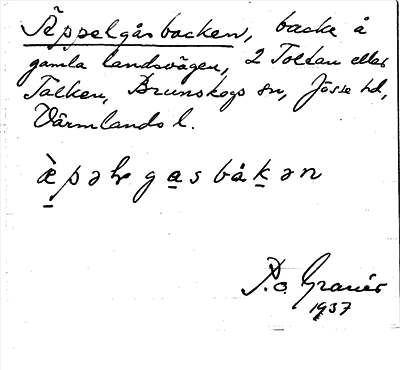 Äppelgåsbacken, backe å
gamla landsvägen, 2 Toltan eller
Talken, Brunskogs sn, Jösse hd,
Värmlands l.
æ̀pəlɽ ga̱sbåḵən
P.o. Granér
1937